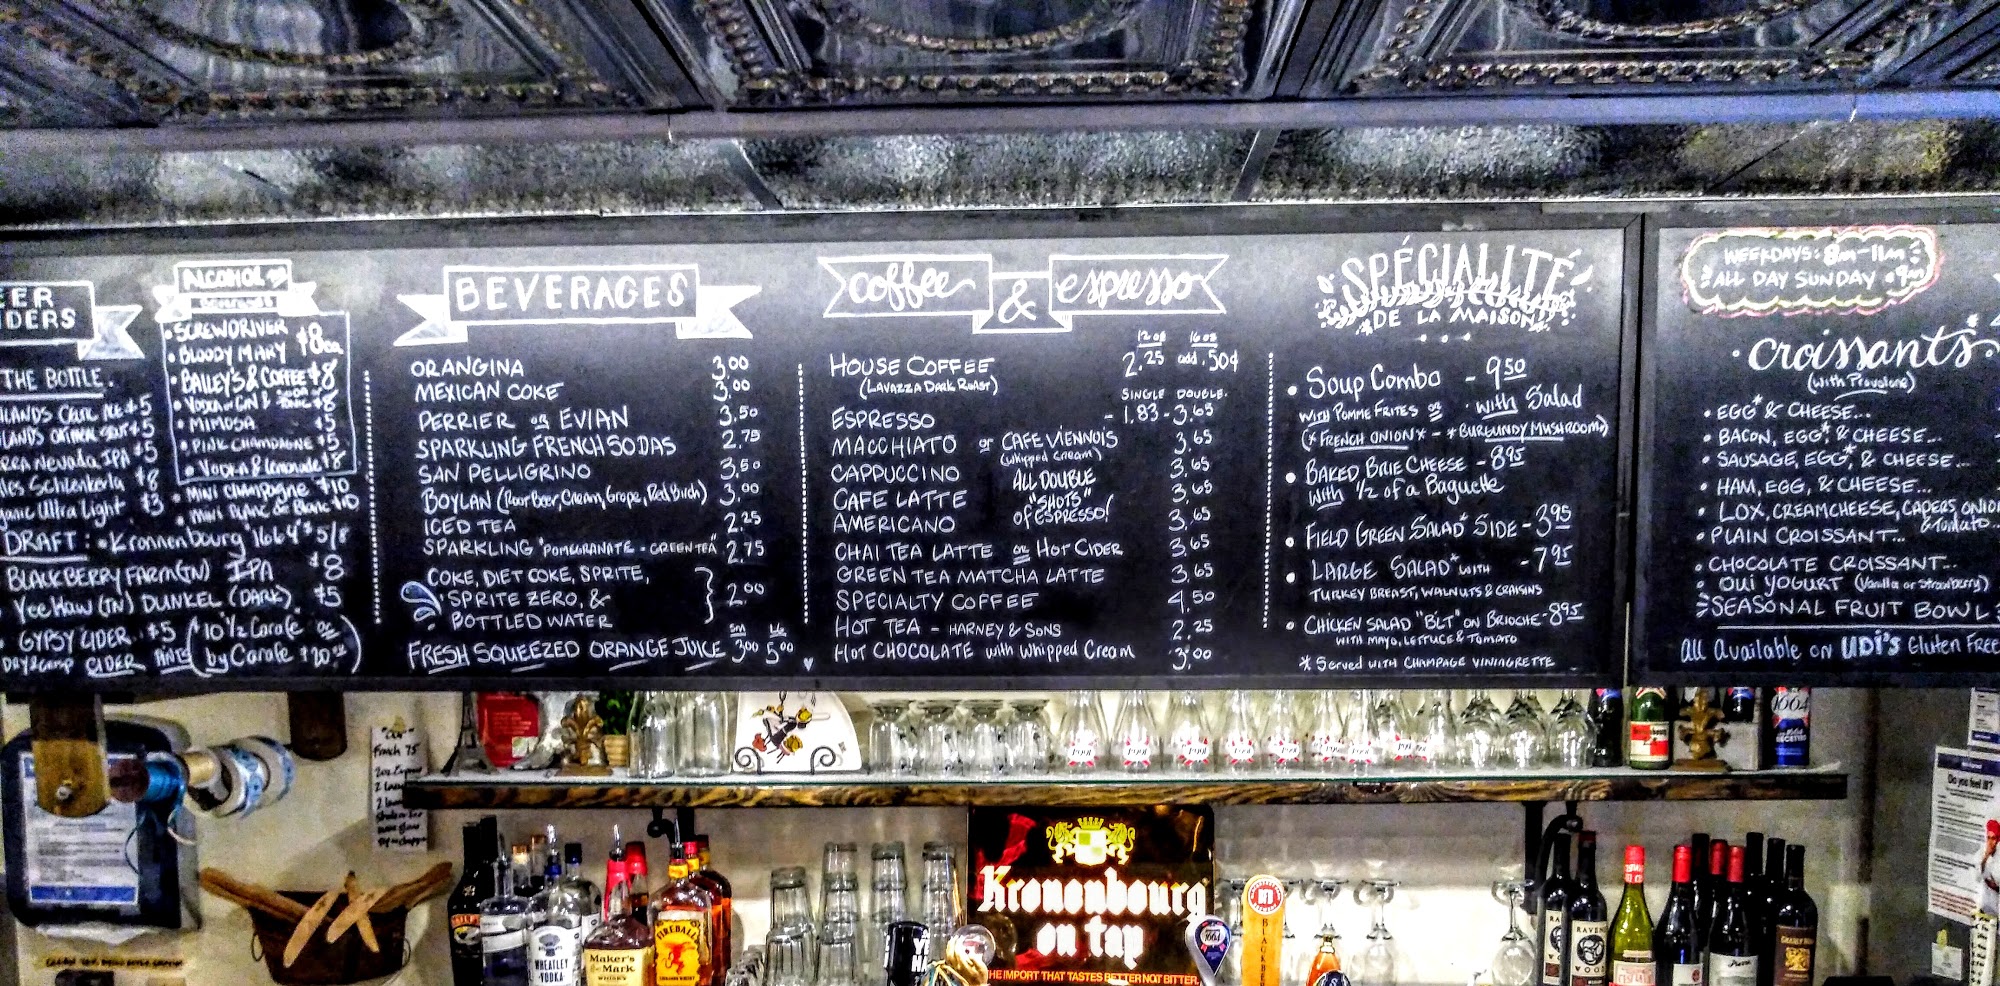 THE BOTTLE.
$5
$5
NEVADA IPA $5
Schlenkerla $8
Ultra Light $3
DRAFT: Kronenbourg 1664 $5/8
BLACKBERRY FARM (TN) IPA $8
YeeHaw (TN) DUNKEL (DARK) $5
GYPSY CIDER $5
CIDER PINTS
(10 ½ Carafe or
by Carafe $20)
ALCOHOL
• SCREWDRIVER
• BLOODY MARY $8ea
• BAILEY'S & COFFEE $8
• VODKA or GIN & TONIC $8
• MIMOSA $5
• PINK CHAMPAGNE $5
• Vodka & Lemonade $8
• MINI CHAMPAGNE $10
• MINI $10
BEVERAGES
ORANGINA 3.00
MEXICAN COKE 3.00
PERRIER or EVIAN 3.50
SPARKLING FRENCH SODAS 2.75
SAN PELLIGRINO 3.50
BOYLAN (Root Beer, Cream, Grape, Red Birch) 3.00
ICED TEA 2.25
SPARKLING "POMEGRANATE - GREEN TEA" 2.75
COKE, DIET COKE, SPRITE,
SPRITE ZERO, & 2.00
BOTTLED WATER
SM LG
FRESH SQUEEZED ORANGE JUICE 3.00 5.00
coffee & espresso
12 oz 16 oz
HOUSE COFFEE 2.25 add .50¢
(LAVAZZA DARK ROAST)
SINGLE DOUBLE
ESPRESSO - 1.83 - 3.65
MACCHIATO or CAFE VIENNOIS 3.65
(whipped cream)
CAPPUCCINO 3.65
ALL DOUBLE
CAFE LATTE 3.65
"SHOTS"
OF ESPRESSO!
AMERICANO 3.65
CHAI TEA LATTE or HOT CIDER 3.65
GREEN TEA MATCHA LATTE 3.65
SPECIALTY COFFEE 4.50
HOT TEA - HARNEY & SONS 2.25
HOT CHOCOLATE with Whipped Cream 3.00
SPÉCIALITÉ
DE LA MAISON
• Soup Combo - 9.50
WITH POMME FRITES or with Salad
(*FRENCH ONION* - *BURGUNDY MUSHROOM)
• BAKED BRIE CHEESE - 8.95
with ½ of a Baguette
• FIELD GREEN SALAD* SIDE - 3.95
• LARGE SALAD* WITH - 7.95
TURKEY BREAST, WALNUTS & CRAISINS
• CHICKEN SALAD "BLT" ON BRIOCHE - 8.95
WITH MAYO, LETTUCE & TOMATO
* SERVED WITH CHAMPAGE VININGRETTE
WEEKDAYS: 8am-11am
ALL DAY SUNDAY • 9am
croissants
(with Provolone)
• EGG* & CHEESE...
• BACON, EGG*, & CHEESE...
• SAUSAGE, EGG*, & CHEESE...
• HAM, EGG, & CHEESE...
• LOX, CREAMCHEESE, CAPERS, ONION
& Tomato...
• PLAIN CROISSANT...
• CHOCOLATE CROISSANT...
• OUI YOGURT (Vanilla or Strawberry)
SEASONAL FRUIT BOWL
all available on UDI'S Gluten Free
French 75
1664
Do you feel ill?
Kronenbourg
on tap
THE IMPORT THAT TASTES BETTER NOT BITTER.
WHEATLEY
VODKA
Maker's
Mark
WHISKY
FIREBALL
RAVENS
WOOD